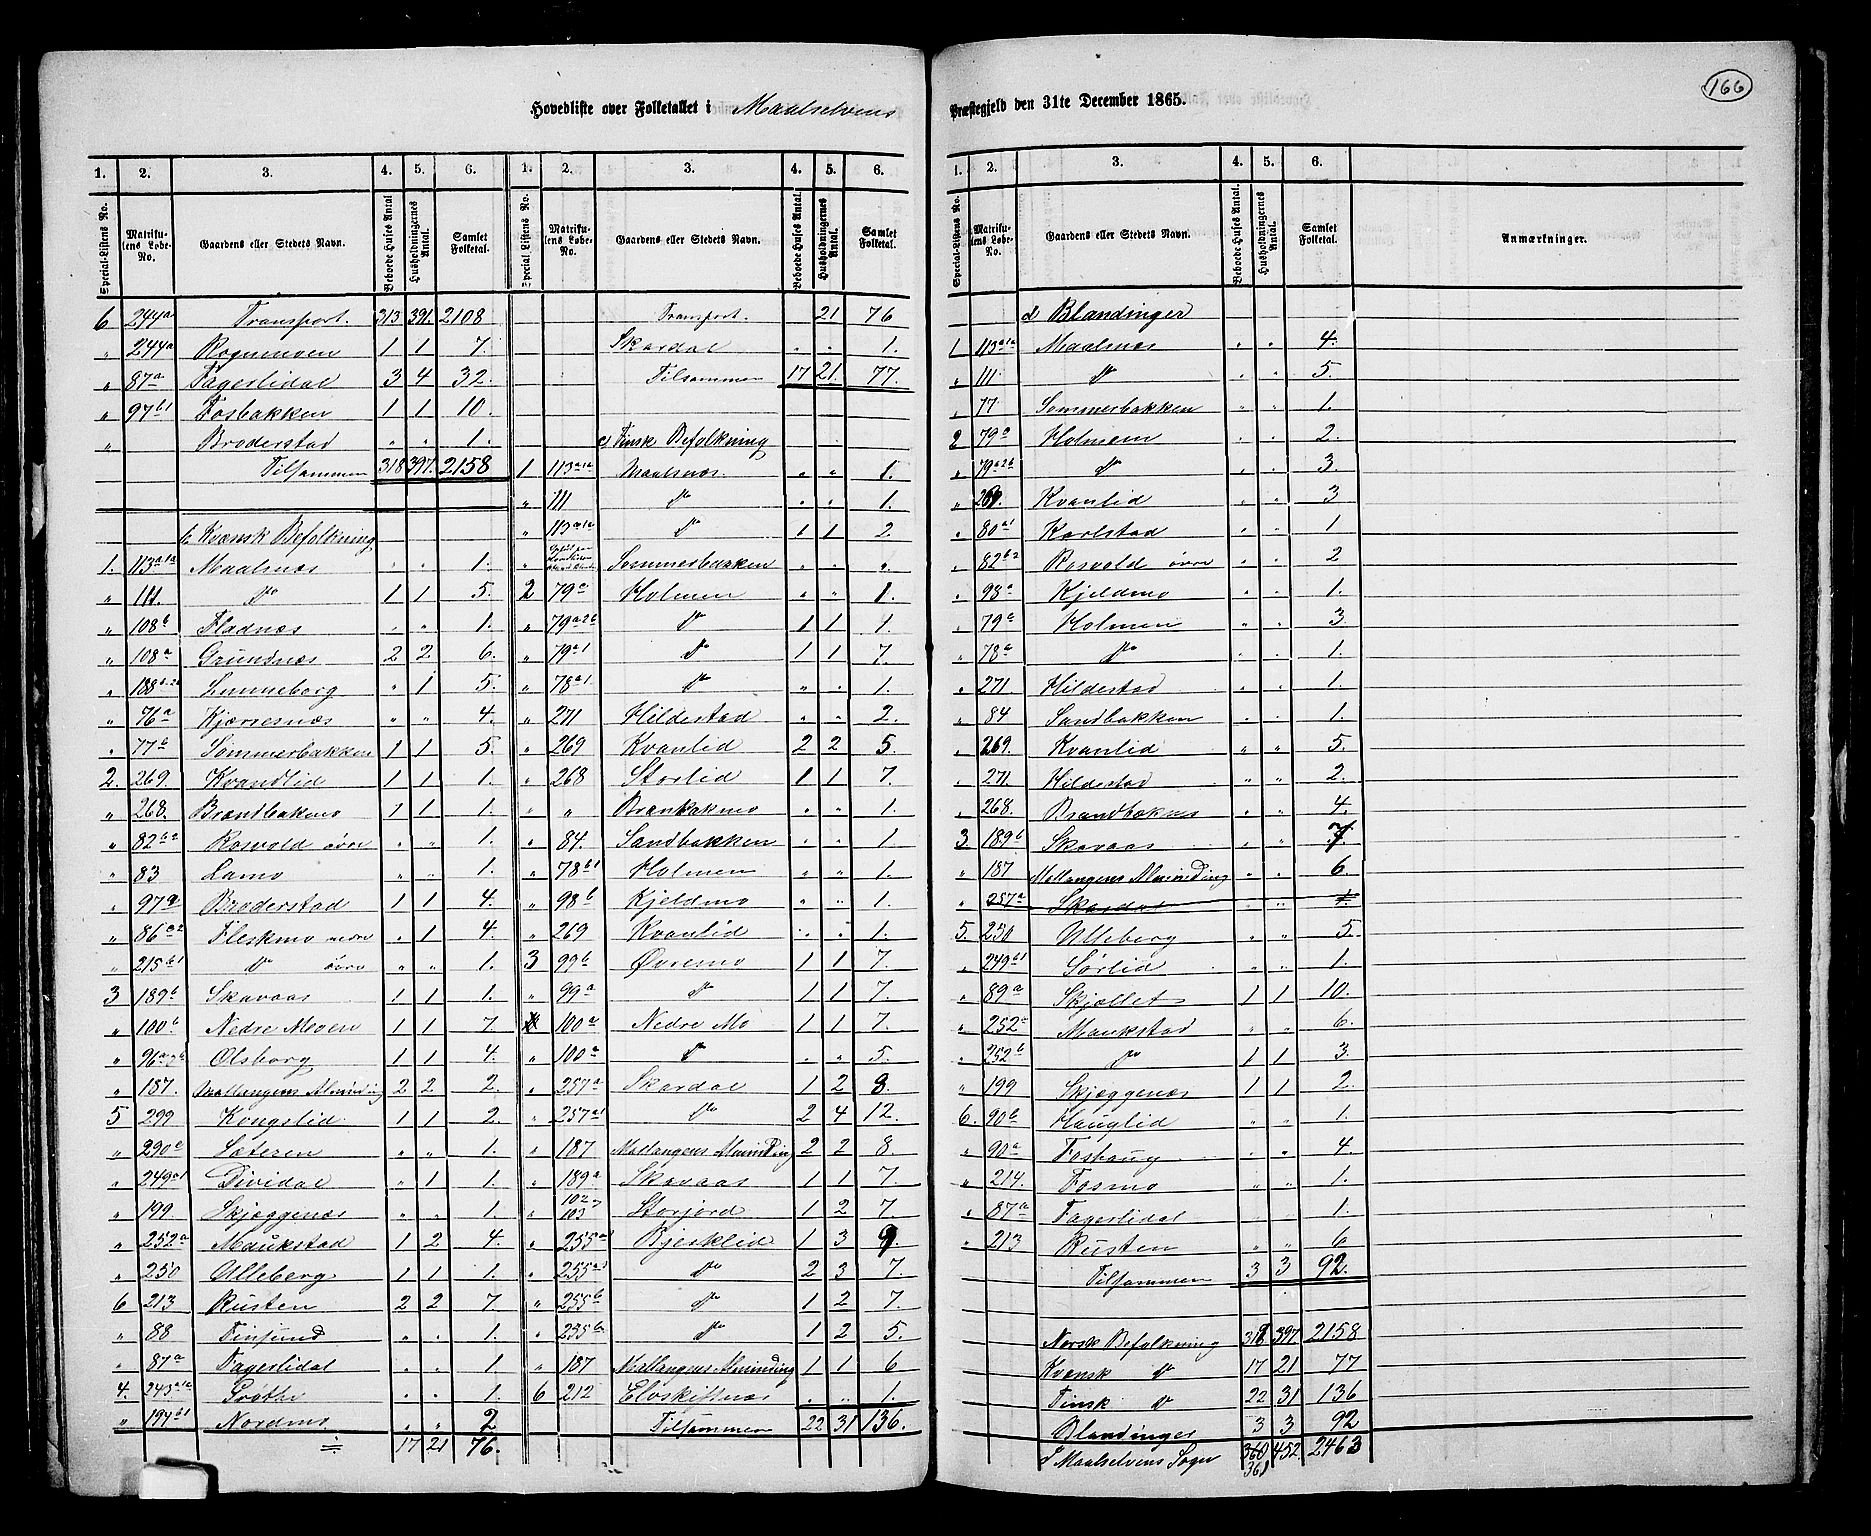 166
Hovedliste over Folketallet i Maalselvens
Præstegjeld den 31te December 1865.
1. 2. 3. 4. 5. 6.
Special-Listens No. Matrikulens Løbe-No. Gaardens eller Stedets Navn. Beboede Huses Antal Husholdningernes Antal. Samlet Folketal.
6 244a Transport. 313 391. 2108
" 244a Rognmoen 1 1 7.
" 87a Fagerlidal 3 4 32.
" 97b1 Fosbakken 1 1 10.
" Broderstad " " 1.
Tilsammen 318 397. 2158
b. Kvænsk Befolkning
1. 113a1a Maalsnæs " " 1.
" 111. do 1 1 5.
" 108b Fladnæs " " 1.
" 108a Grundnæs 2 2 6.
" Lunneborg " 1 5.
" 76a Kjærresnæs " " 4.
" 77b Sommerbakken 1 1 5.
2. 269. Kvandlid 1 1 1.
" 268. Brandbakmo 1 1 1.
" 82b2 Rosvold øvre " " 1.
" 83 Lamo " " 1.
" 97a Broderstad 1 1 4.
" 86a2 Fleskmo nedre " 1 4.
" 215b1 do øvre " " 1.
3 189b Skavaas 1 1 1.
" 100b Nedre Moen 1 1 7.
" Olsborg 1 1 4.
" 187. Mallangens Alminding 2 2 2.
5 299 Kongslid 1 1 2.
" 290a Sæteren " " 1.
" 249a1 Dividal " 1 1.
" 199 Skjæggenæs " " 1.
" 252a Maukstad 1 2 4.
" 250 Ulleberg 1 1 1.
6 213 Rusten 2 2 7.
" 88 Finsund " " 1.
" 87a Fagerlidal " " 1.
4. 243a1a Grøtte " " 1.
" 194b1 Nordmo " " 2
17 21 76.
1. 2. 3. 4. 5. 6.
Special Listens No. Matrikulens Løbe-No. Gaardens eller Stedets Navn. Beboede Huses Antal. Husholdningernes Antal. Samlet Folketal.
Transport. 21 76
Skardal " " 1.
Tilsammen 17 21. 77.
c) Finsk Befolkning
1 113a1a Maalsnæs " " 1.
" 111 do " " 1.
" 113a1a do 1 1 2
" Sommerbakken " " "
2 79a Holmen " " 1.
" 79a2b do 1 1 1.
" 79a1 do 1 1 7.
" 78a1 do " " 1.
" 271 Hildestad " " 2.
" 269 Kvanlid 2 2 5.
" 268 Storlid 1 1 7.
" " Brankakmo " " 1.
" 84. Sandbakken " " 1
" 78b1 Holmen " " 1.
" 98b Kjeldmo " " 1.
" 269 Kvanlid " " 1.
3 99b Øvremo 1 1 7.
" 99a do 1 1 7.
100a Nedre Mo 1 1 7.
" 100a do " " 5.
" 257a Skardal 1 2 8.
" 257a1 do 2 4 12.
" 187 Mallangens Alminding 2 2 8
" 189a Skavaas 1 1 7.
" 102, 103 Storjord 1 2 7
" 255a Bjerklid 1 3 9.
" 255a1 do 2 3 7.
" 255b do 1 2 7.
" 255b. do 1 2 5.
" 187 Mallangens Alminding 1 1 6
6 212 Elvskiftnæs " " 1.
Tilsammen 22 31 136.
1. 2. 3. 4. 5. 6.
Special-Listens No. Matrikulens Løbe-No. Gaardens eller Stedets Navn. Beboede Huses Antal. Husholdningernes Antal. Samlet Folketal. Anmærkninger.
d Blandinger
1 113a1a Maalsnæs " " 4.
" 111 do " " 5.
" 77 Sommerbakken " " 1.
2 79a Holmen " " 2.
" 79a2b do " " 3.
" 269. Kvanlid " " 3
" 80a1 Karlstad " " 1
" 82b2 Rosvold øvre " " 2
" 98a Kjeldmo " " 1.
" 79a Holmen " " 3.
" 78a do " " 1.
" 271. Hildestad " " 1.
" 84 Sandbakken " " 1.
" 269. Kvanlid " " 5.
" 271. Hildestad " " 2.
" 268. Brandbakmo " " 4.
3 189b Skavaas " " 7.
" 187 Mallangens Alminding " " 6.
" 257a Skardal " " 1.
5. 250 Ulleberg " " 5.
" 249b1 Sørlid " " 1.
" 89a Skjøllet 1 1 10.
" 252a Maukstad " " 6.
" 252b do 1 1 3.
" 199 Skjæggenæs 1 1 2.
6. 90b Hauglid " " 1.
" 90a Foshaug " " 4.
" 214. Fosmo " " 1.
" 87a Fagerlidal " " 1.
" 213 Rusten " " 6
Tilsammen 3 3 92.
Norsk Befolkning 318 397 2158
Kvænsk do 17 21 77
Finsk do 22 31 136
Blandinger 3 3 92
I Maalselvens Sogn 360 452. 2463
361